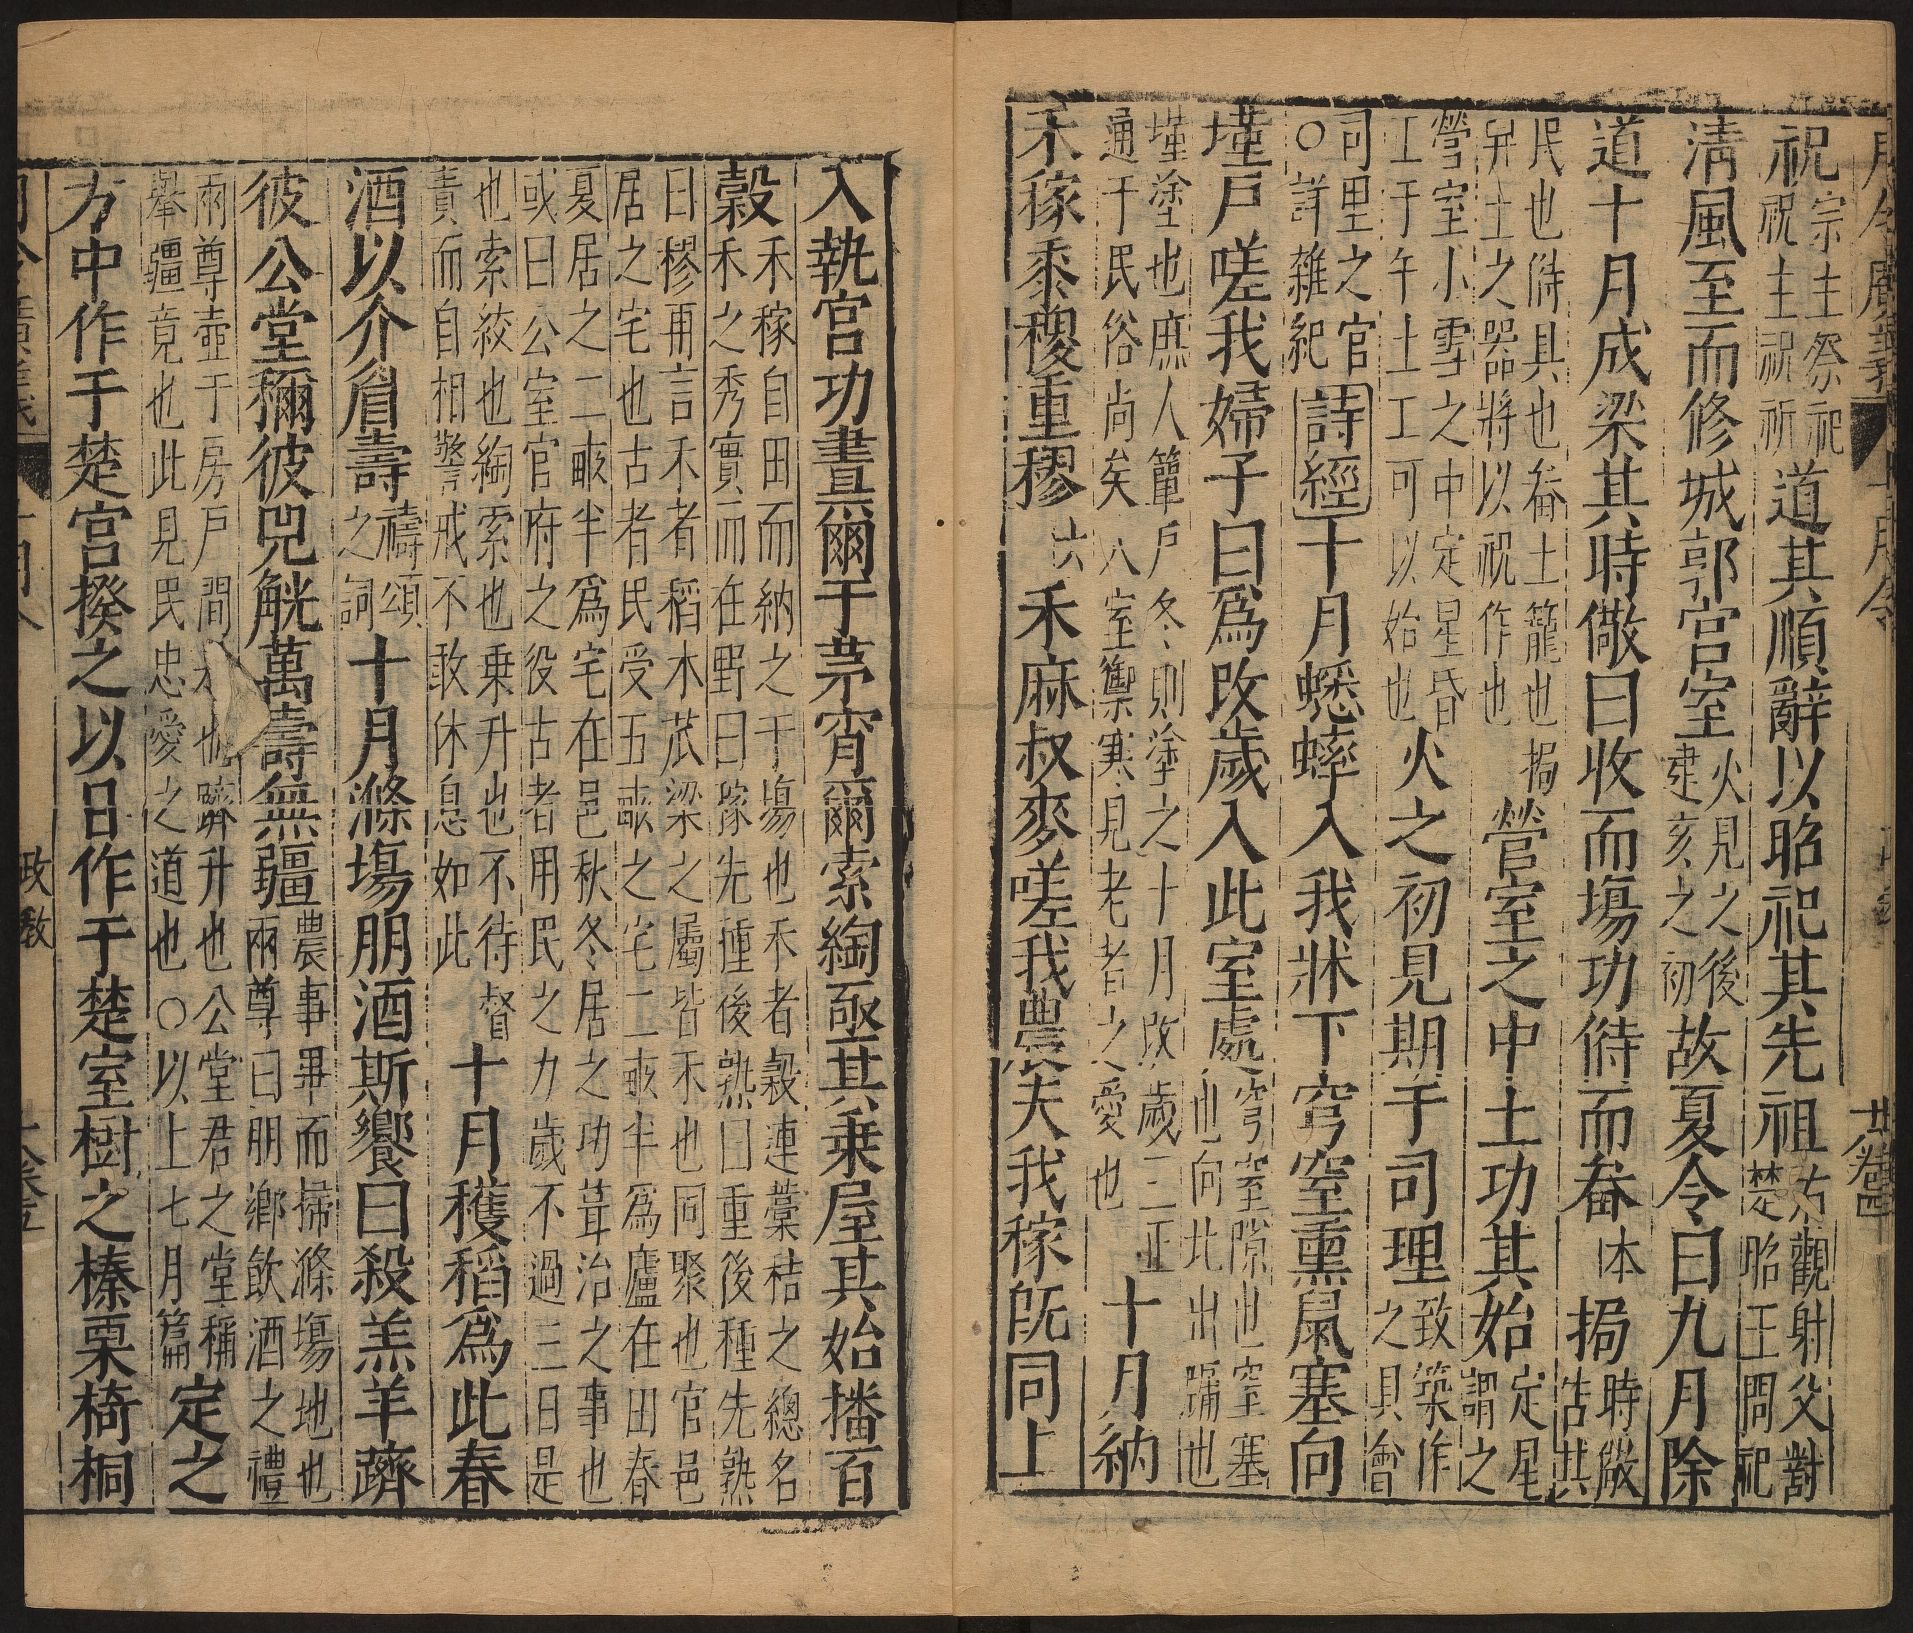 祝宗主祭祀祝祝主祝祈道其順辭以昭祀其先祖右觀射父對楚昭王問祀
清風至而修城郭宮室火見之後建亥之初故夏令曰九月除
道十月成梁其時儆曰收而場功偫而畚本挶時儆告其
民也偫具也畚土籠也挶舁土之器將以祝作也營室之中土功其始定星謂之
營室小雪之中定星昏工于午土工可以始也火之初見期于司理致築作之具會
司里之官○詳雜紀詩經十月蟋蟀入我牀下穹窒熏鼠塞向
墐戶嗟我婦子曰為改歲入此室處穹窒隙也窒塞也向北出牖也
墐塗也庶人篳戶冬則塗之十月改歲三正通于民俗尚矣入室禦寒見老者之愛也十月納
禾稼黍稷重穋六禾麻叔麥嗟我農夫我稼旣同上
入執宮功晝爾于茅宵爾索綯亟其乗屋其始播百
穀禾稼自田而納之于場也禾者穀連藁秸之總名禾之秀實而在野曰稼先種後熟曰重後種先熟
曰穋再言禾者稻木苽梁之屬皆禾也同聚也官邑居之宅也古者民受五畝之宅二畝半為廬在田春
夏居之二畝半為宅在邑秋冬居之功葺治之事也或曰公室官府之役古者用民之力歲不過三日是
也索絞也綯索也乗升也不待督責而自相警戒不敢休息如此十月穫稻為此春
酒以介眉壽禱頌之詞十月滌場朋酒斯饗曰殺羔羊躋
彼公堂稱彼兕觥萬壽無疆農事畢而掃滌場地也兩尊曰朋鄉飲酒之禮
兩尊壺于房戶間是也躋升也公堂君之堂稱舉疆竟也此見民忠愛之道也○以上七月篇定之
方中作于楚宮揆之以日作于楚室樹之榛栗椅桐
政教